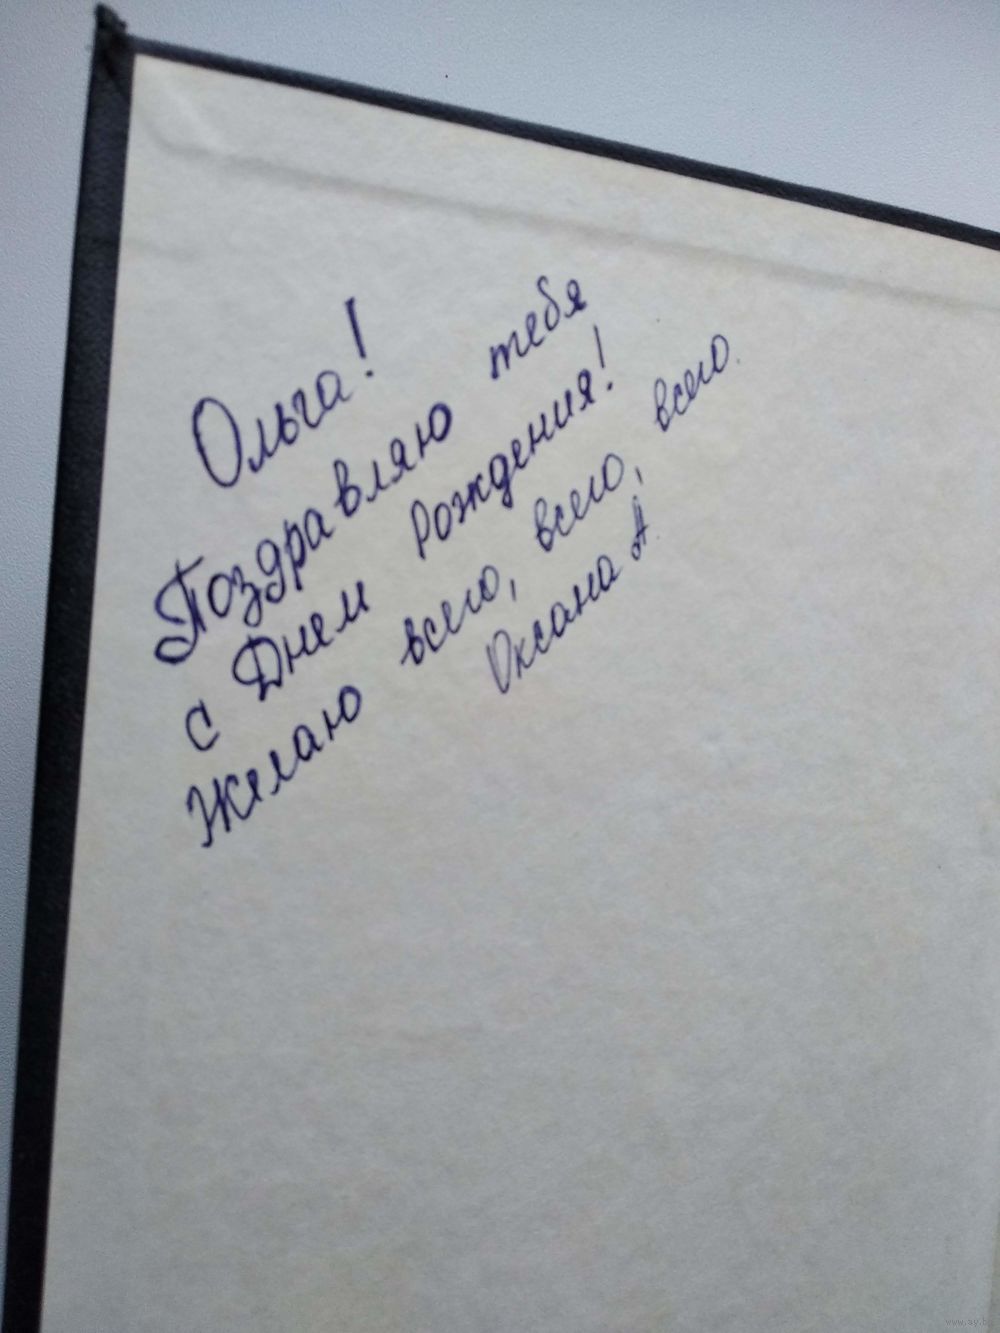 Ольга!
Поздравляю тебя
с Днем Рождения!
Желаю всего, всего, всего.
Оксана А.